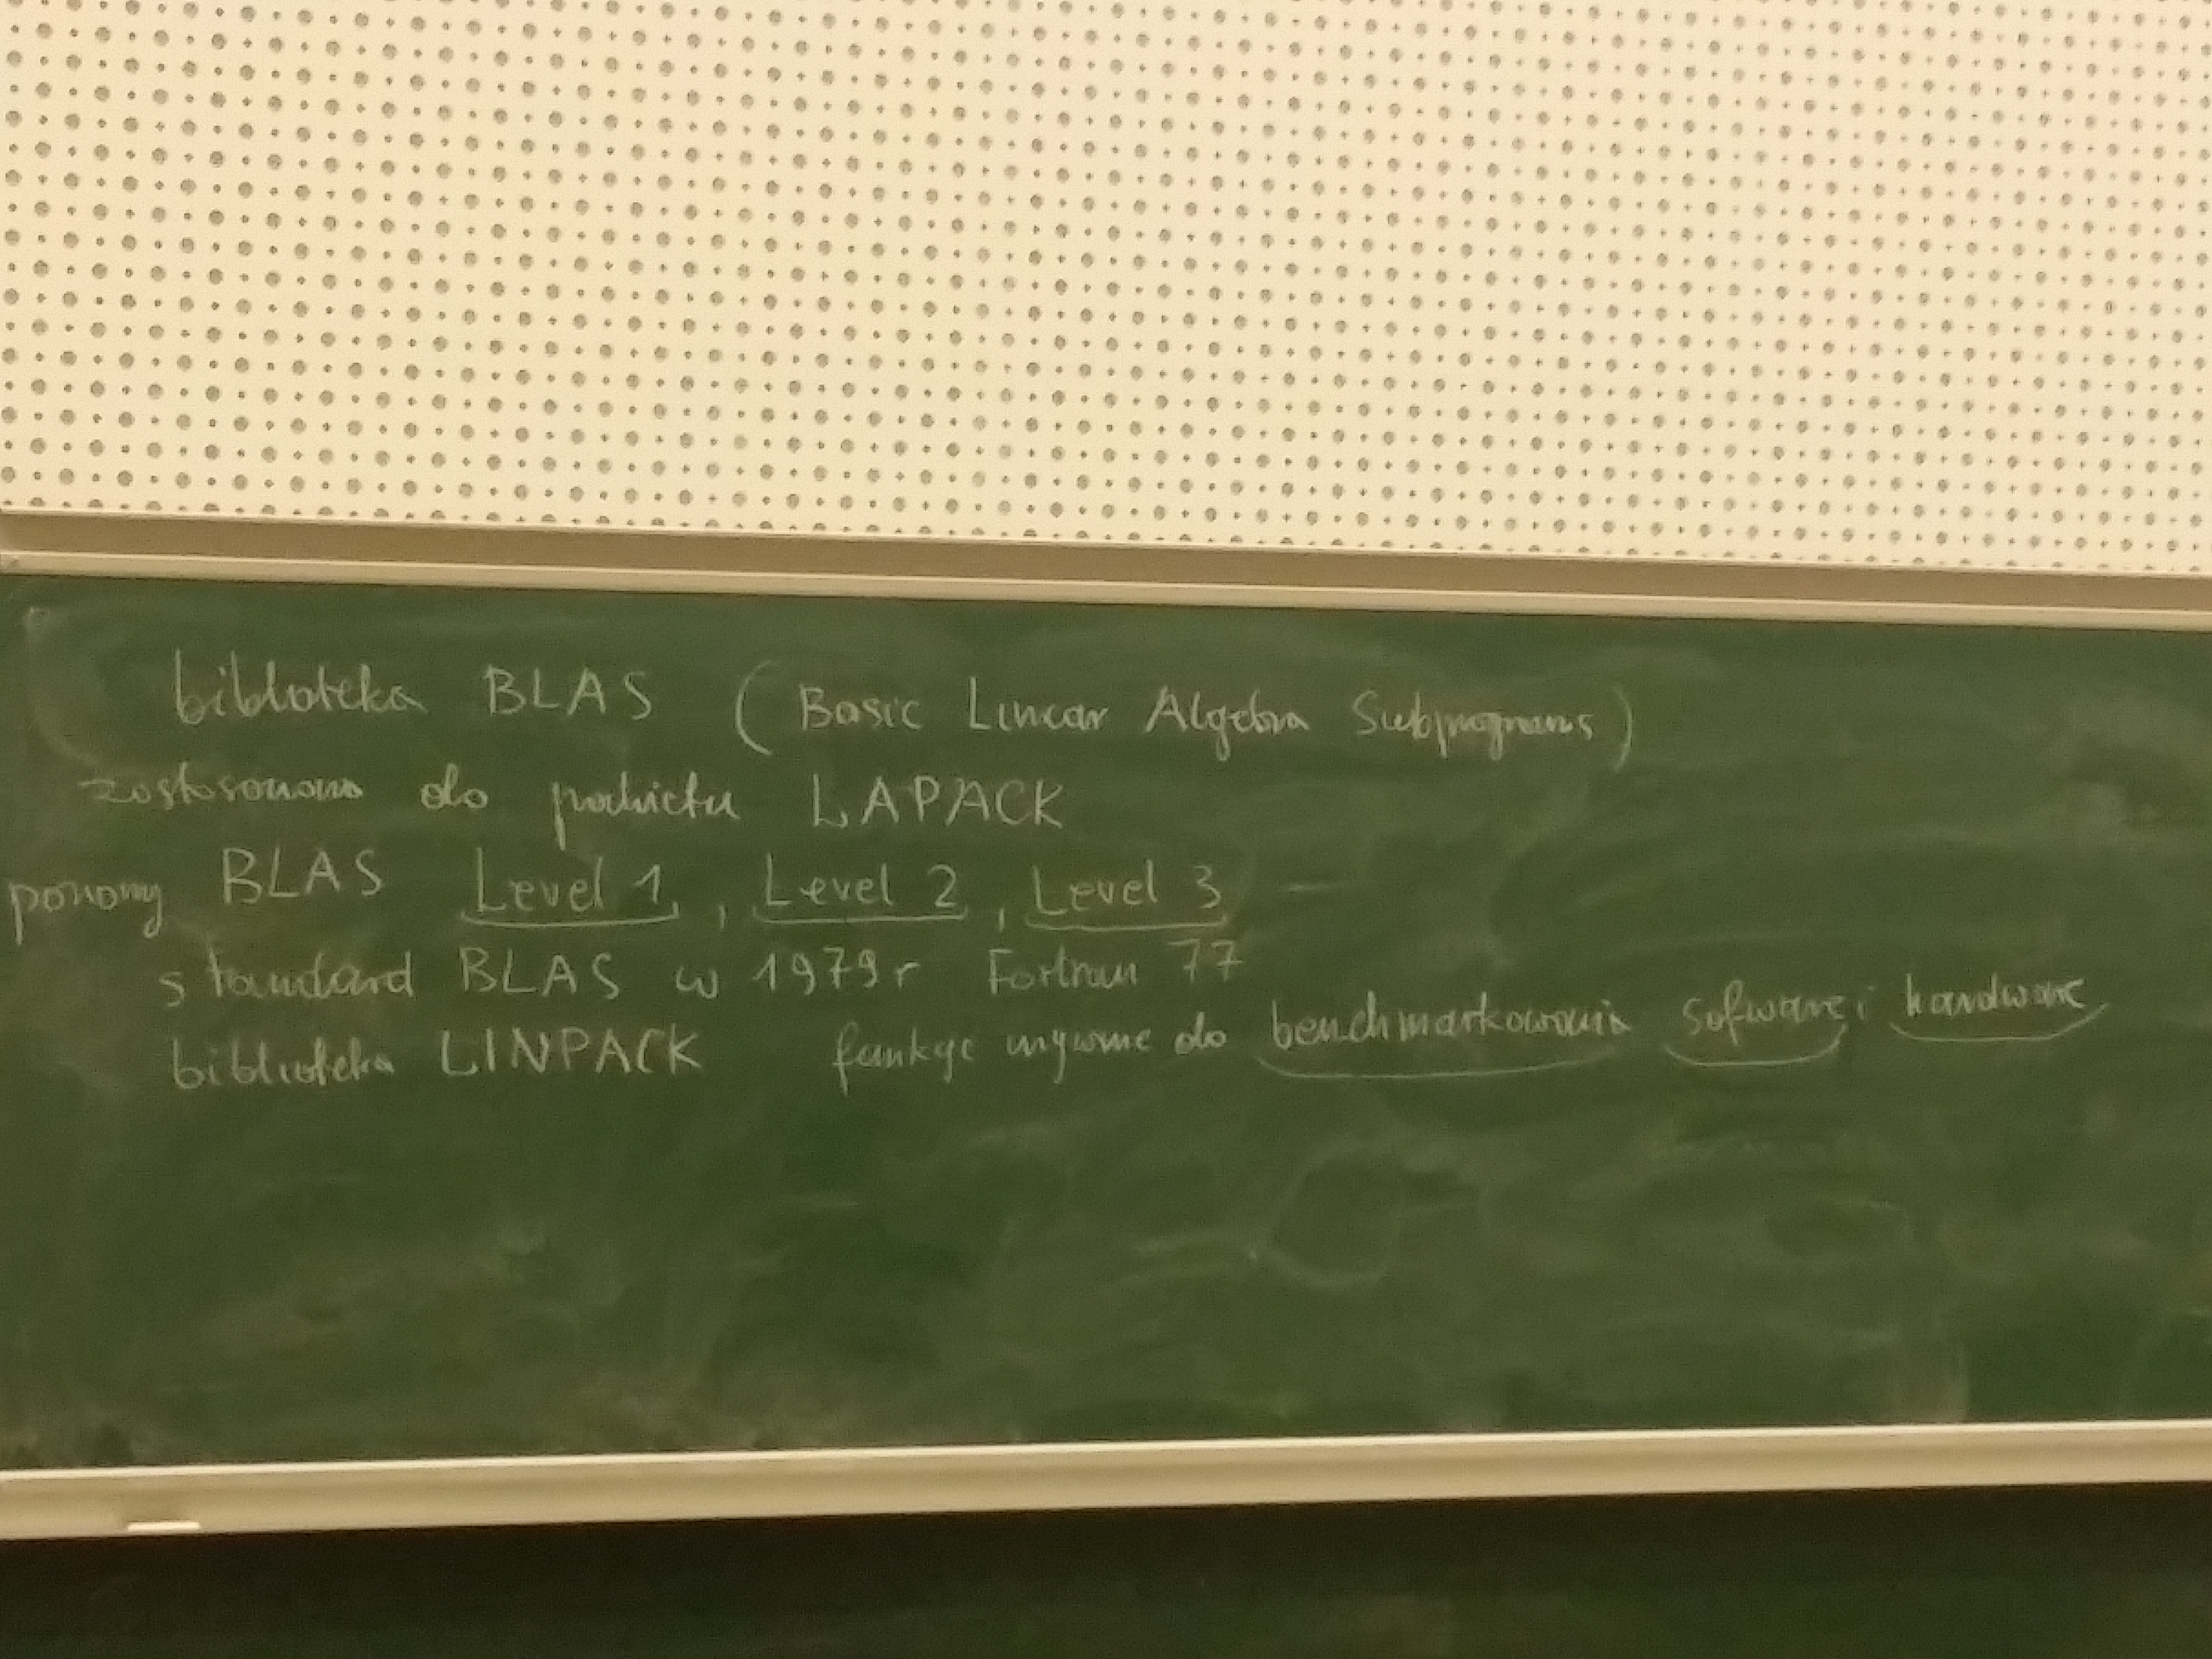 biblioteka BLAS (Basic Linear Algebra Subprograms)
zastosowano do pakietu LAPACK
poziomy BLAS Level 1, Level 2, Level 3
standard BLAS w 1979 r Fortran 77
biblioteka LINPACK funkcje używane do benchmarkowania sofware i hardware